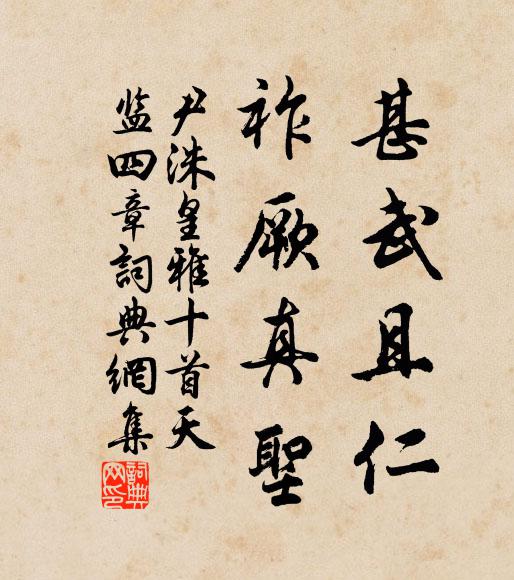 甚武且仁
祚厥真聖
尹洙皇雅十首天
监四章詞典網集
詞典
网印